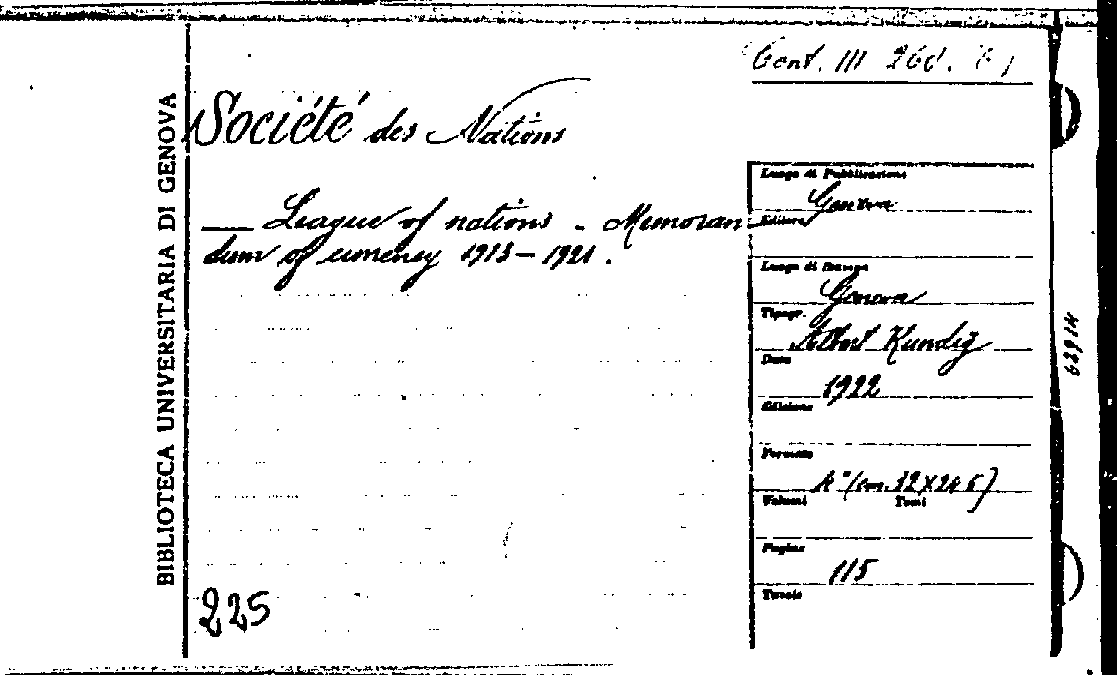 Cont. III 260.
Société des Nations
— League of nations - Memoran
dum of currency 1913-1921.
225
BIBLIOTECA UNIVERSITARIA DI GENOVA
Luogo di Pubblicazione
Genova
Editore
Luogo di Stampa
Genova
Tipogr.
Albert Kundig
Data
1922
Edizione
Formato
4° (cm. 32X24 5)
Volumi Tomi
Pagine
115
Tavole